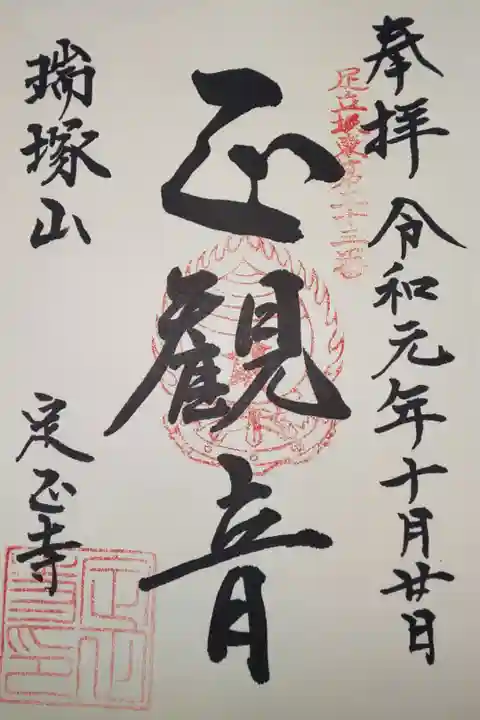 奉拝 令和元年十月廿日
足立坂東第二十三番
正觀音
瑞塚山
定正寺